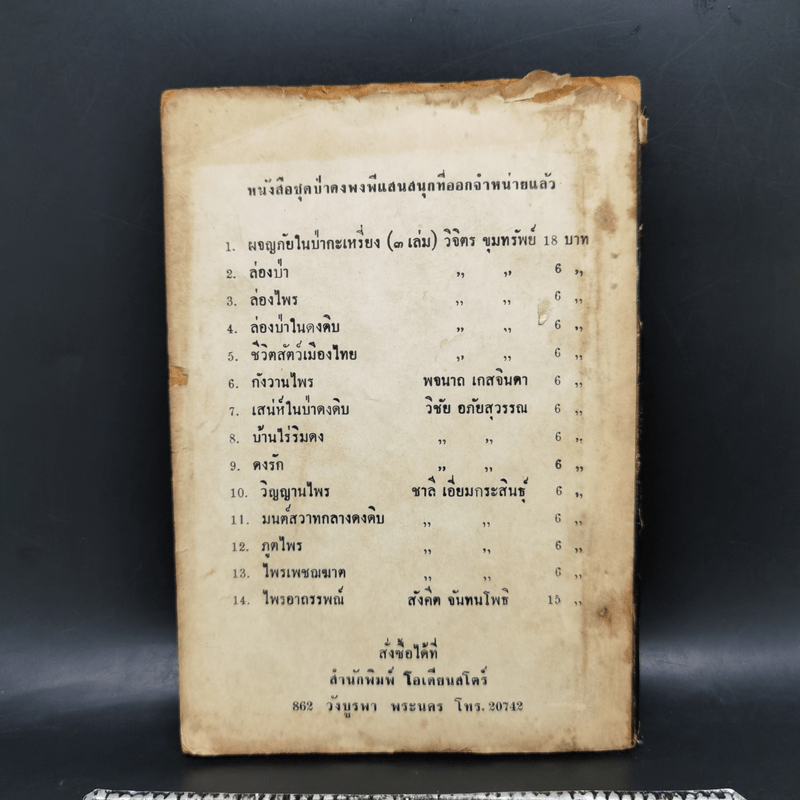 หนังสือชุดป่าดงพงพีแสนสนุกที่ออกจำหน่ายแล้ว
1. ผจญภัยในป่ากะเหรี่ยง (๓ เล่ม) วิจิตร ขุมทรัพย์ 18 บาท
2. ล่องป่า ,, ,, 6 ,,
3. ล่องไพร ,, ,, 6 ,,
4. ล่องป่าในดงดิบ ,, ,, 6 ,,
5. ชีวิตสัตว์เมืองไทย ,, ,, 6 ,,
6. กังวานไพร พจนาถ เกสจินดา 6 ,,
7. เสน่ห์ในป่าดงดิบ วิชัย อภัยสุวรรณ 6 ,,
8. บ้านไร่ริมดง ,, ,, 6 ,,
9. ดงรัก ,, ,, 6 ,,
10. วิญญานไพร ชาลี เอี่ยมกระสินธุ์ 6 ,,
11. มนต์สวาทกลางดงดิบ ,, ,, 6 ,,
12. ภูตไพร ,, ,, 6 ,,
13. ไพรเพชฌฆาต ,, ,, 6 ,,
14. ไพรอาถรรพณ์ สังคีต จันทนโพธิ 15 ,,
สั่งซื้อได้ที่
สำนักพิมพ์ โอเดียนสโตร์
862 วังบูรพา พระนคร โทร. 20742